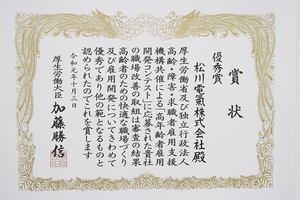 賞状
優秀賞
松川電氣株式会社殿
厚生労働省及び独立行政法人
高齢・障害・求職者雇用支援
機構共催による「高年齢者雇用
開発コンテスト」に応募された貴社
の職場改善の取組は審査の結果
高齢者のための快適な職場づくり
及び雇用開発についてきわめて
優秀であり他の範となるものと
認められたのでこれを賞します
令和元年十月三日
厚生労働大臣 加藤勝信